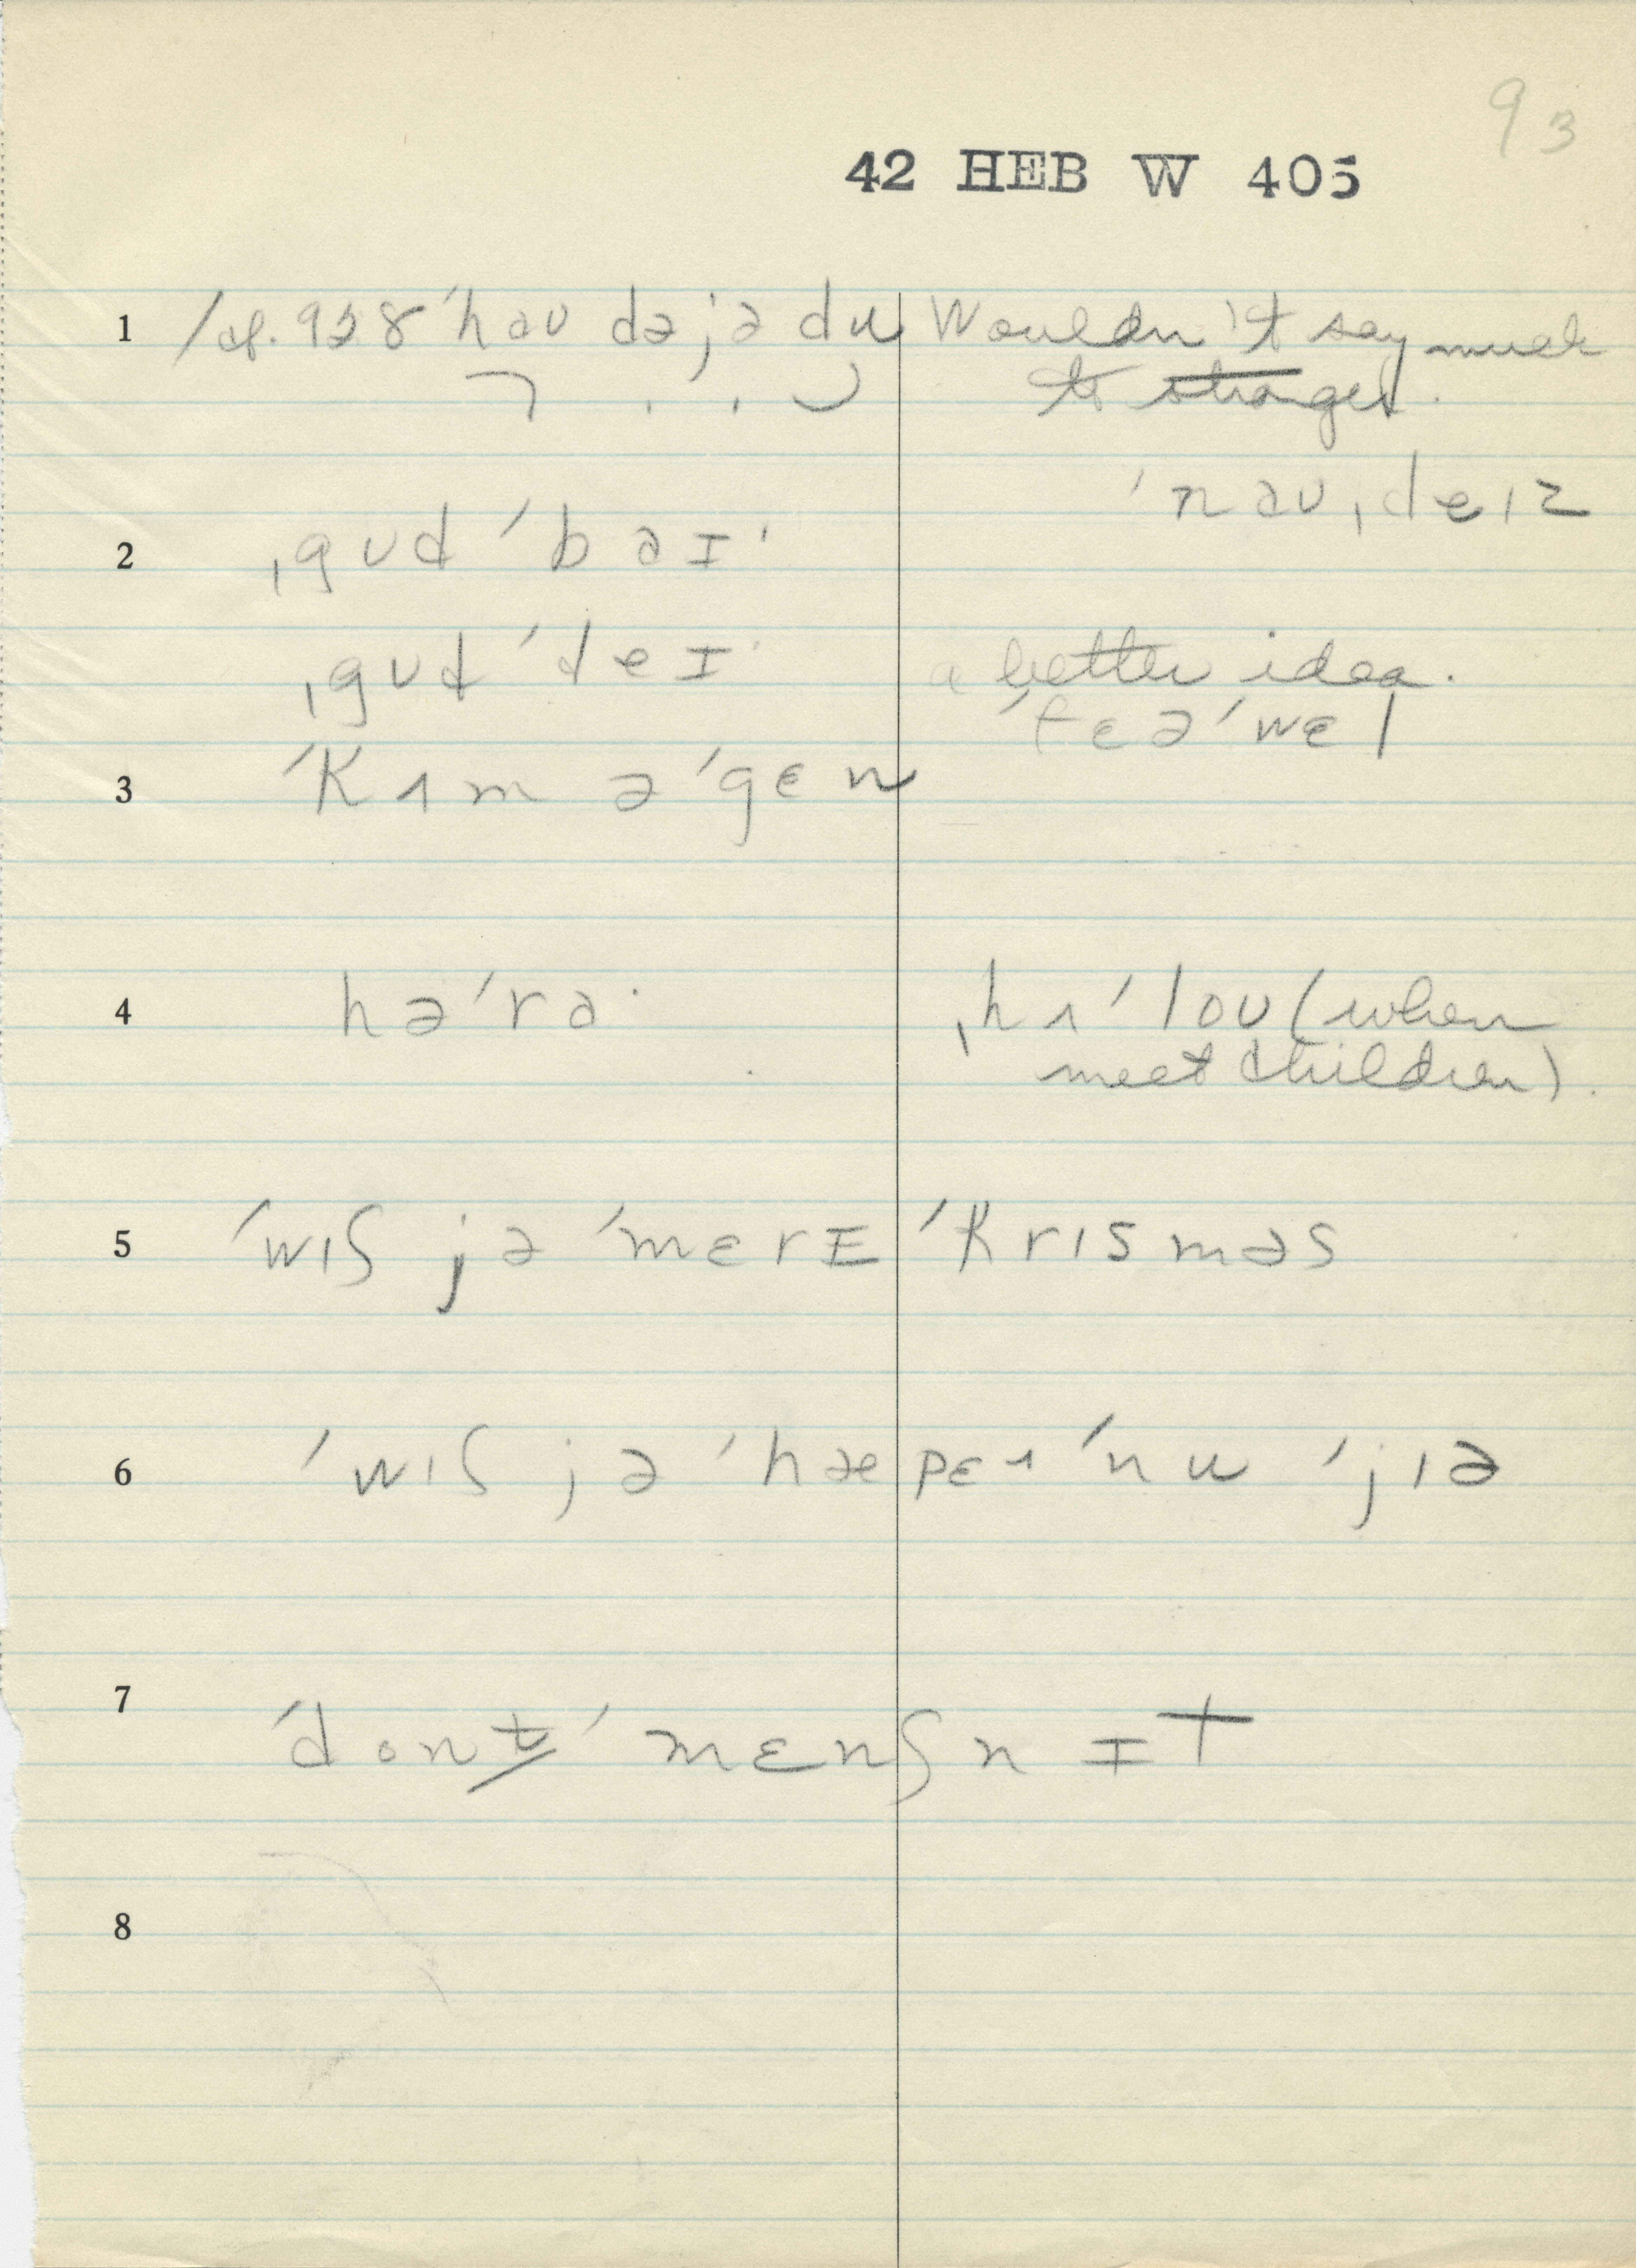 93
42 HEB W 405
1 /cf. 928 ˈhəu də jə du Wouldn't say much
to stranger.
ˈnəu ˌdeɪz
2 ˌgud ˈbəɪ·
ˌgud ˈdeɪ· a better idea.
ˈfɛəˈwɛl
3 ˈkʌm əˈgɛn
4 həˈrə· ˌhʌˈlou (when
meet children).
5 ˈwɪʃ jə ˈmɛrɪ ˈkrɪsməs
6 ˈwɪʃ jə ˈhæpɛɪ ˈnu ˈjɪə
7 ˈdont ˈmɛnʃn ɪt
8